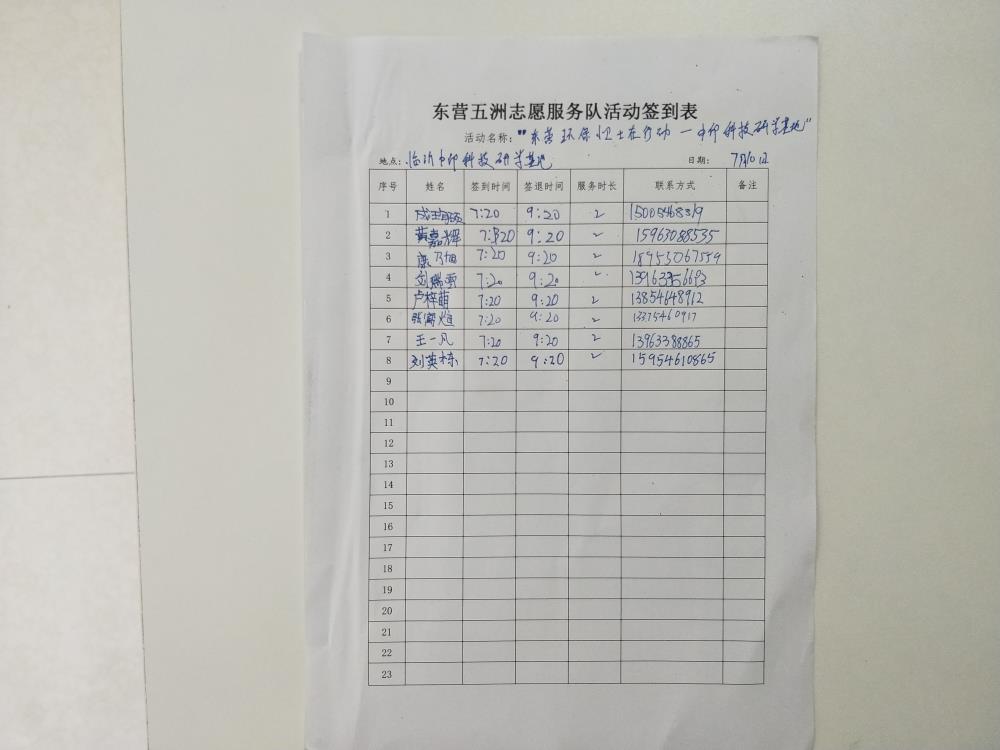 东营五洲志愿服务队活动签到表
活动名称："东营环保卫士在行动一中印科技研学基地"
地点：临沂中印科技研学基地 日期：7月10日
序号 姓名 签到时间 签退时间 服务时长 联系方式 备注
1 7:20 9:20 2
2 黄嘉辉 9:20 2 15963088535
3 康乃旭 7:20 9:20 2 18953067559
4 刘瑞雪 7:20 9:20 2
5 卢梓萌 7:20 9:20 2 13854648912
6 7:20 9:20 2 13375460917
7 王一凡 7:20 9:20 2 13963388865
8 刘英栋 7:20 9:20 2 15954610865
9
10
11
12
13
14
15
16
17
18
19
20
21
22
23